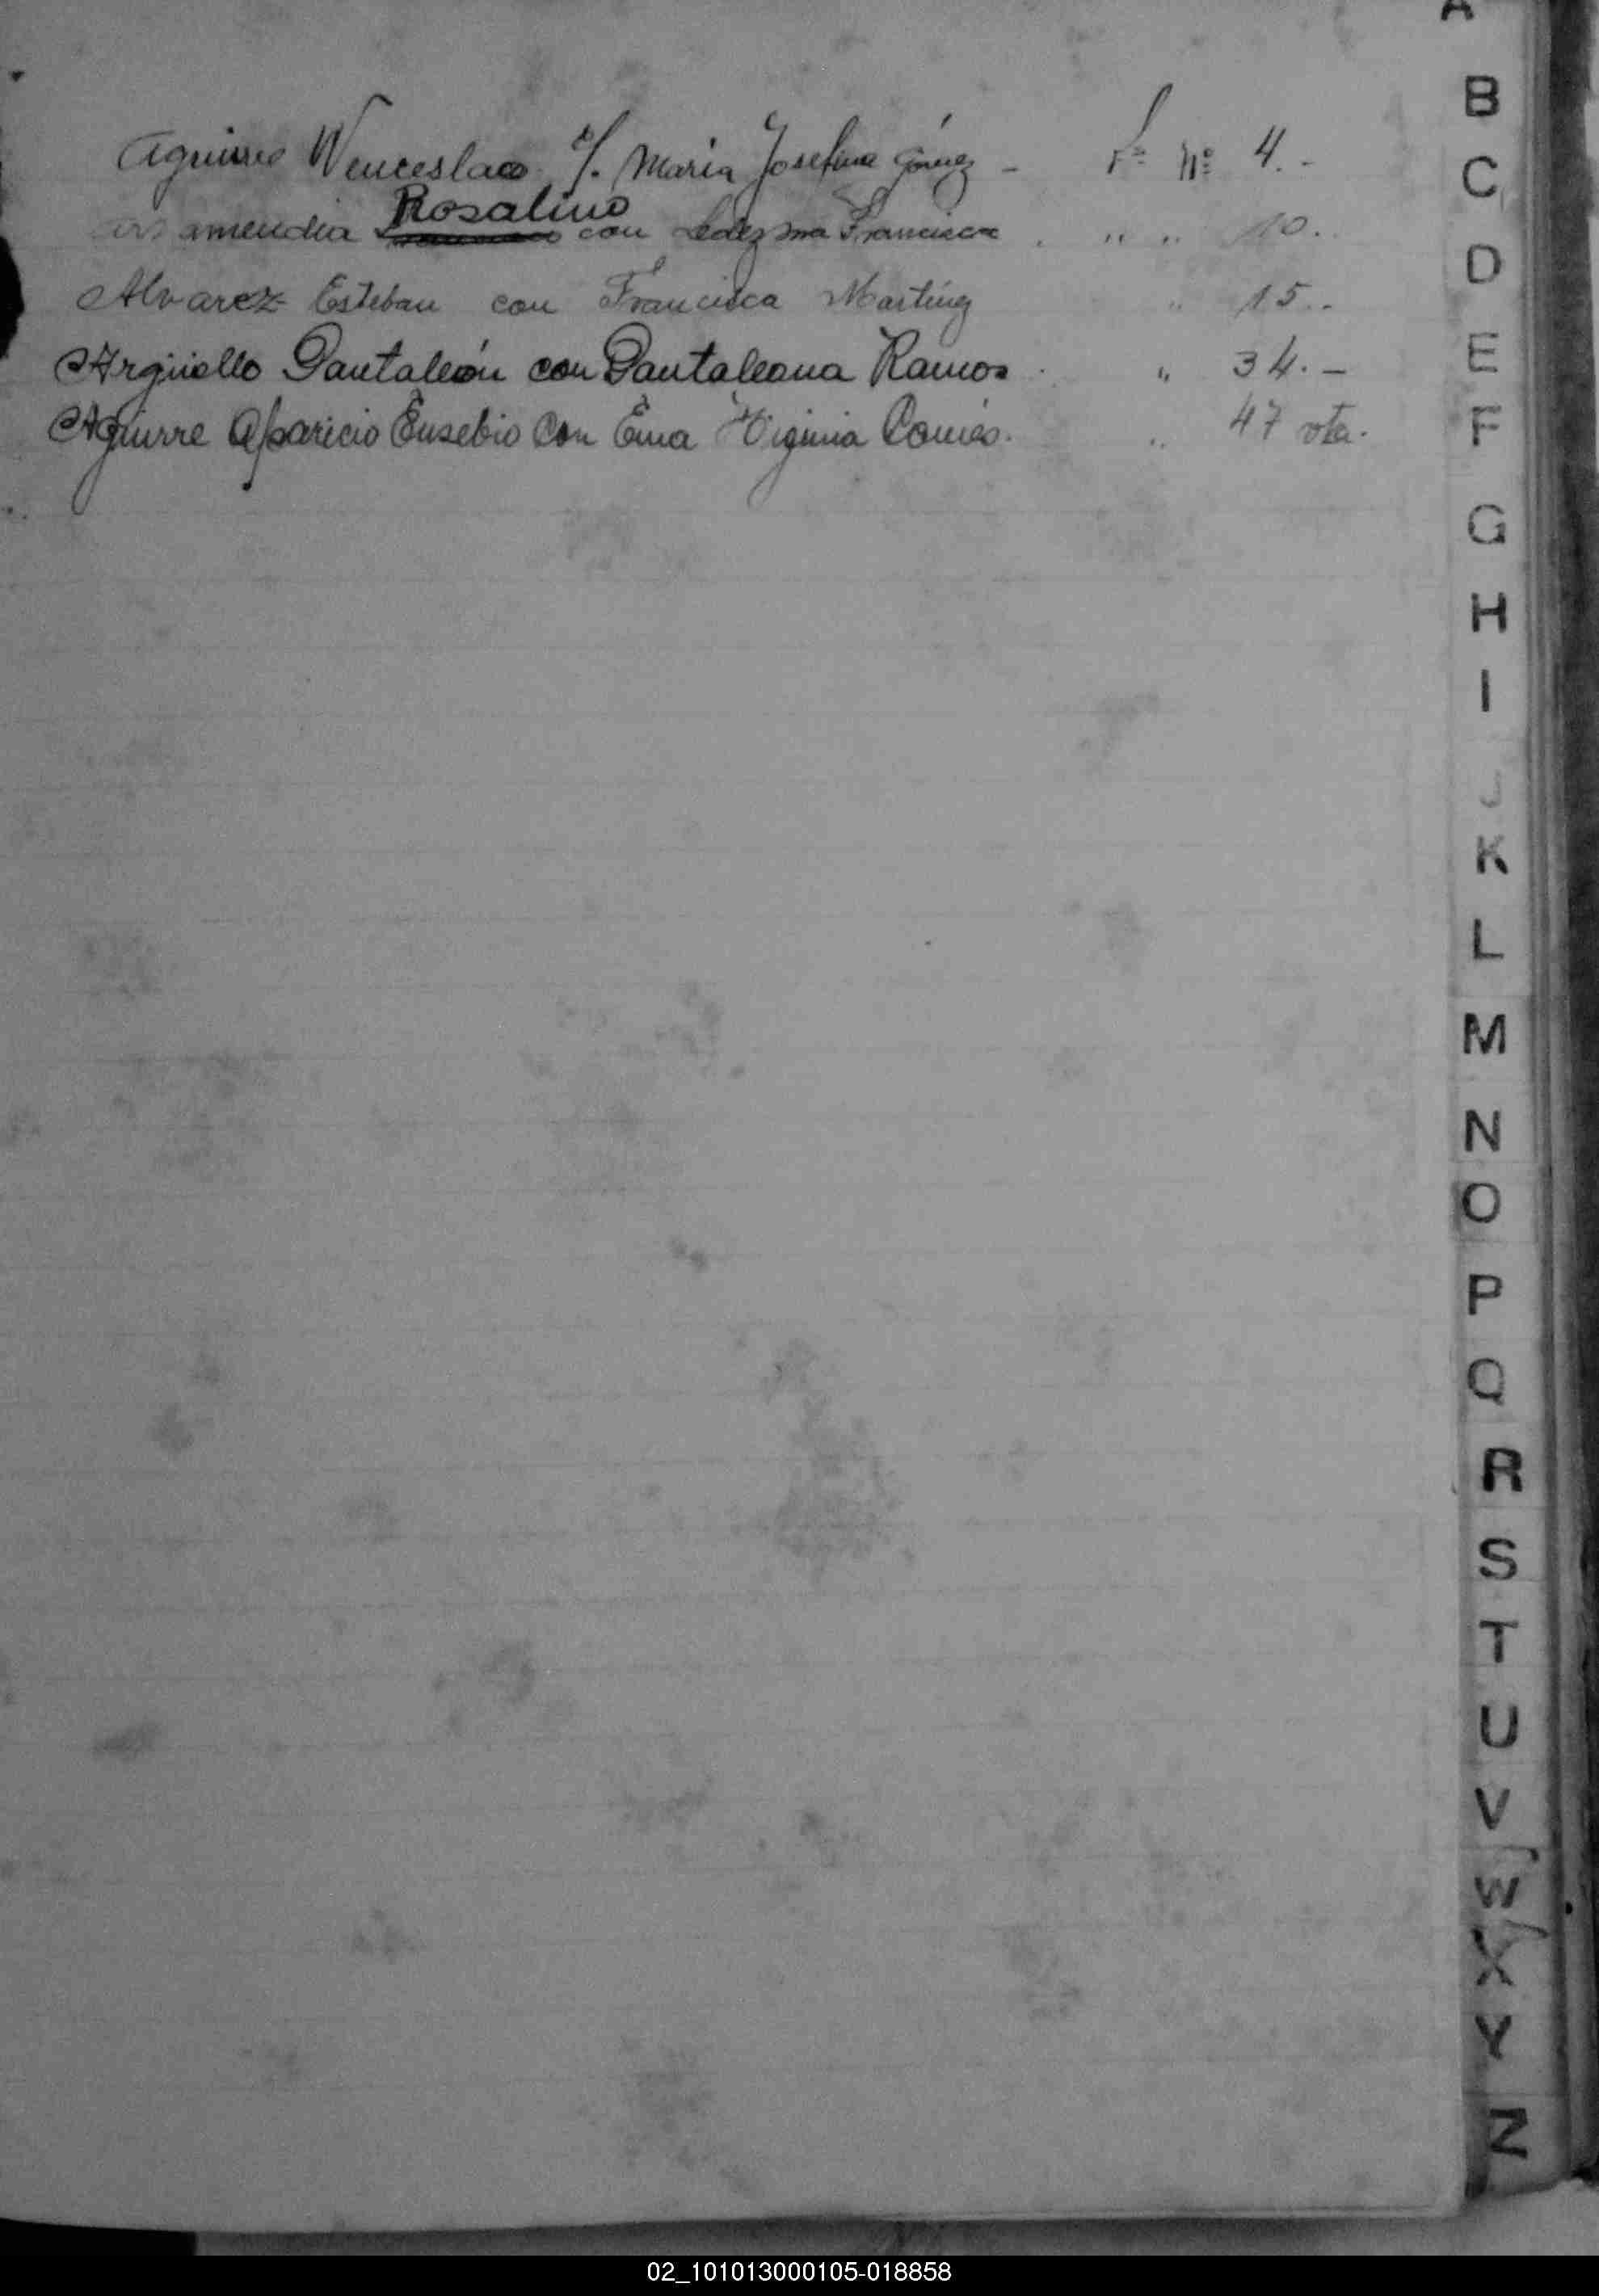 A
Aguirre Wenceslao c/. Maria Josefina Gómez - Fº Nº 4.-
Rosalino
Arsamendia con Ledezma Francisca . " " 10.
Alvarez Esteban con Francisca Martínez " 15..
Argüello Pantaleón con Pantaleona Ramos . " 34.-
Aguirre Aparicio Eusebio Con Ema Virginia " 47 vta.
B
C
D
E
F
G
H
I
J
K
L
M
N
O
P
Q
R
S
T
U
V
W
X
Y
Z
02_101013000105-018858